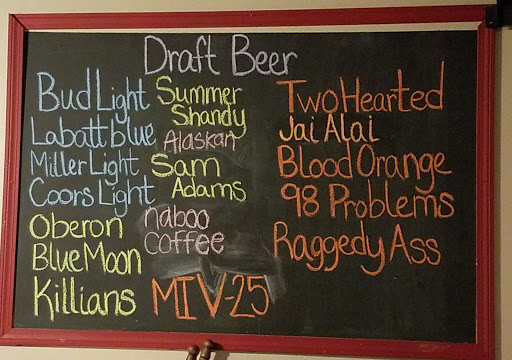 Draft Beer
Bud Light
Labatt blue
Miller Light
Coors Light
Oberon
Blue Moon
Killians
Summer
Shandy
Alaskan
Sam
Adams
naboo
coffee
MIV-25
Two Hearted
Jai Alai
Blood Orange
98 Problems
Raggedy Ass